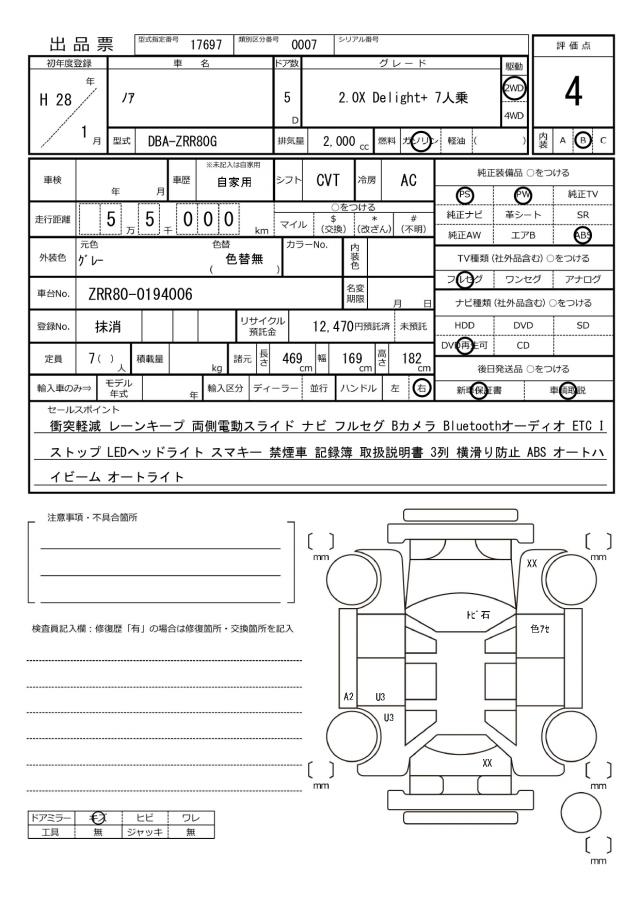 出品票 型式指定番号 17697 類別区分番号 0007 シリアル番号
評価点
4
内装 A B C
初年度登録 車名 ドア数 グレード 駆動
H 28 年 / 1 月 ﾉｱ 5 D 2.0X Delight+ 7人乗 2WD 4WD
型式 DBA-ZRR80G 排気量 2,000 cc 燃料 ガソリン 軽油 ( )
車検 年 月 車歴 ※未記入は自家用 自家用 シフト CVT 冷房 AC
走行距離 5 万 5 千 0 0 0 km ○をつける マイル $ (交換) * (改ざん) # (不明)
外装色 元色 ｸﾞﾚｰ 色替 ( 色替無 ) カラーNo. 内装色
車台No. ZRR80-0194006 名変期限 月 日
登録No. 抹消 リサイクル預託金 12,470円預託済 未預託
定員 7( ) 人 積載量 kg 諸元 長さ 469 cm 幅 169 cm 高さ 182 cm
輸入車のみ⇒ モデル年式 年 輸入区分 ディーラー 並行 ハンドル 左 右
純正装備品 ○をつける
PS PW 純正TV
純正ナビ 革シート SR
純正AW エアB ABS
TV種類 (社外品含む) ○をつける
フルセグ ワンセグ アナログ
ナビ種類 (社外品含む) ○をつける
HDD DVD SD
DVD再生可 CD
後日発送品 ○をつける
新車保証書 車輌取説
セールスポイント
衝突軽減 レーンキープ 両側電動スライド ナビ フルセグ Bカメラ Bluetoothオーディオ ETC I
ストップ LEDヘッドライト スマキー 禁煙車 記録簿 取扱説明書 3列 横滑り防止 ABS オートハ
イビーム オートライト
注意事項・不具合箇所
検査員記入欄：修復歴「有」の場合は修復箇所・交換箇所を記入
ドアミラー キズ ヒビ ワレ
工具 無 ジャッキ 無
〔 〕 mm
〔 〕 mm
XX
ﾄﾋﾞ石
色ｱｾ
A2 U3
U3
XX
〔 〕 mm
〔 〕 mm
〔 〕 mm